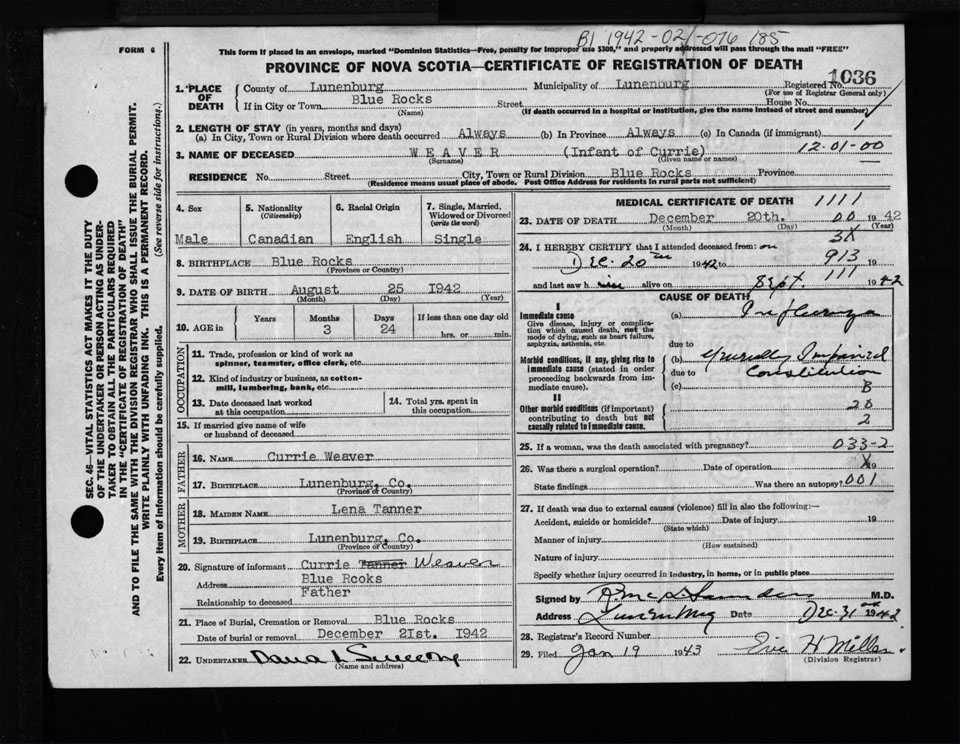 B1 1942-02-076185
FORM 6
This form if placed in an envelope, marked "Dominion Statistics—Free, penalty for improper use $300," and properly addressed will pass through the mail "FREE"
PROVINCE OF NOVA SCOTIA—CERTIFICATE OF REGISTRATION OF DEATH
SEC. 46—VITAL STATISTICS ACT MAKES IT THE DUTY
OF THE UNDERTAKER OR PERSON ACTING AS UNDER-
TAKER TO OBTAIN ALL THE PARTICULARS REQUIRED
IN THE "CERTIFICATE OF REGISTRATION OF DEATH"
AND TO FILE THE SAME WITH THE DIVISION REGISTRAR WHO SHALL ISSUE THE BURIAL PERMIT.
WRITE PLAINLY WITH UNFADING INK. THIS IS A PERMANENT RECORD.
Every item of information should be carefully supplied. (See reverse side for instructions.)
1. PLACE OF DEATH
County of Lunenburg Municipality of Lunenburg Registered No. 1036
(For use of Registrar General only)
If in City or Town Blue Rocks Street House No.
(Name) (If death occurred in a hospital or institution, give the name instead of street and number)
2. LENGTH OF STAY (in years, months and days)
(a) In City, Town or Rural Division where death occurred Always (b) In Province Always (c) In Canada (if immigrant) 1
3. NAME OF DECEASED WEAVER (Infant of Currie) 12-01-00
(Surname) (Given name or names)
RESIDENCE No. Street City, Town or Rural Division Blue Rocks Province
(Residence means usual place of abode. Post Office Address for residents in rural parts not sufficient)
4. Sex
Male
5. Nationality
(Citizenship)
Canadian
6. Racial Origin
English
7. Single, Married,
Widowed or Divorced
(write the word)
Single
8. BIRTHPLACE Blue Rocks
(Province or Country)
9. DATE OF BIRTH August 25 1942
(Month) (Day) (Year)
10. AGE in
Years Months Days If less than one day old
3 24 hrs. or min.
OCCUPATION
11. Trade, profession or kind of work as
spinner, teamster, office clerk, etc.
12. Kind of industry or business, as cotton-
mill, lumbering, bank, etc.
13. Date deceased last worked
at this occupation
14. Total yrs. spent in
this occupation
15. If married give name of wife
or husband of deceased
FATHER
16. NAME Currie Weaver
17. BIRTHPLACE Lunenburg, Co.
(Province or Country)
MOTHER
18. MAIDEN NAME Lena Tanner
19. BIRTHPLACE Lunenburg, Co.
(Province or Country)
20. Signature of informant Currie Tanner Weaver
Address Blue Rocks
Relationship to deceased Father
21. Place of Burial, Cremation or Removal Blue Rocks
Date of burial or removal December 21st. 1942
22. UNDERTAKER Dana L
(Name and address)
MEDICAL CERTIFICATE OF DEATH 1111
23. DATE OF DEATH December 20th. 00 1942
(Month) (Day) (Year)
3X
24. I HEREBY CERTIFY that I attended deceased from: on
Dec. 20th 1942 to 913 19
111
and last saw h alive on Sept. 1942
CAUSE OF DEATH
I
Immediate cause
Give disease, injury or complica-
tion which caused death, not the
mode of dying, such as heart failure,
asphyxia, asthenia, etc.
(a) Influenza
due to
Morbid conditions, if any, giving rise to
immediate cause (stated in order
proceeding backwards from im-
mediate cause).
(b) Generally Impaired
due to Constitution
(c) B
II
Other morbid conditions (if important)
contributing to death but not
causally related to immediate cause.
20
2
25. If a woman, was the death associated with pregnancy? 033-2
26. Was there a surgical operation? Date of operation X 19
State findings Was there an autopsy? 001
27. If death was due to external causes (violence) fill in also the following:—
Accident, suicide or homicide? Date of injury 19
(State which)
Manner of injury
(How sustained)
Nature of injury
Specify whether injury occurred in industry, in home, or in public place
Signed by M.D.
Address Lunenburg Date Dec. 31st 1942
28. Registrar's Record Number
29. Filed Jan 19 1943 Eric H
(Division Registrar)